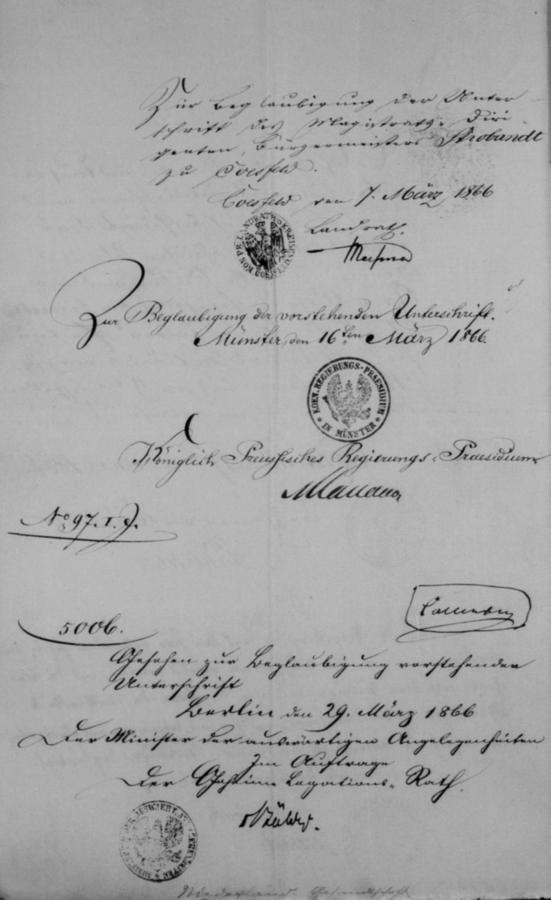 Zur Beglaubigung der Unter-
schrift des Magistrats-Diri-
genten, Bürgermeisters Strobandt
zu Coesfeld.
Coesfeld, den 7. März 1866
Landrath.
Zur Beglaubigung der vorstehenden Unterschrift.
Münster, den 16ten März 1866.
KOEN. REGIERUNGS-PRAESIDIUM
IN MÜNSTER
Königlich Preussisches Regierungs-Praesidium
No 97. I. J.
5006.
Gesehen zur Beglaubigung vorstehender
Unterschrift
Berlin den 29. März 1866
Der Minister der auswärtigen Angelegenheiten
Im Auftrage
Der Geheime Legations-Rath.
Niederländ. Gesandtschaft